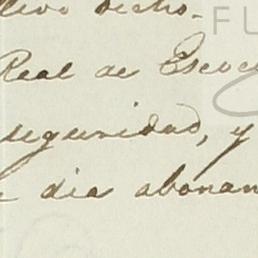 dicho.
Real de Escoc
seguridad, y
dia abonan
FU